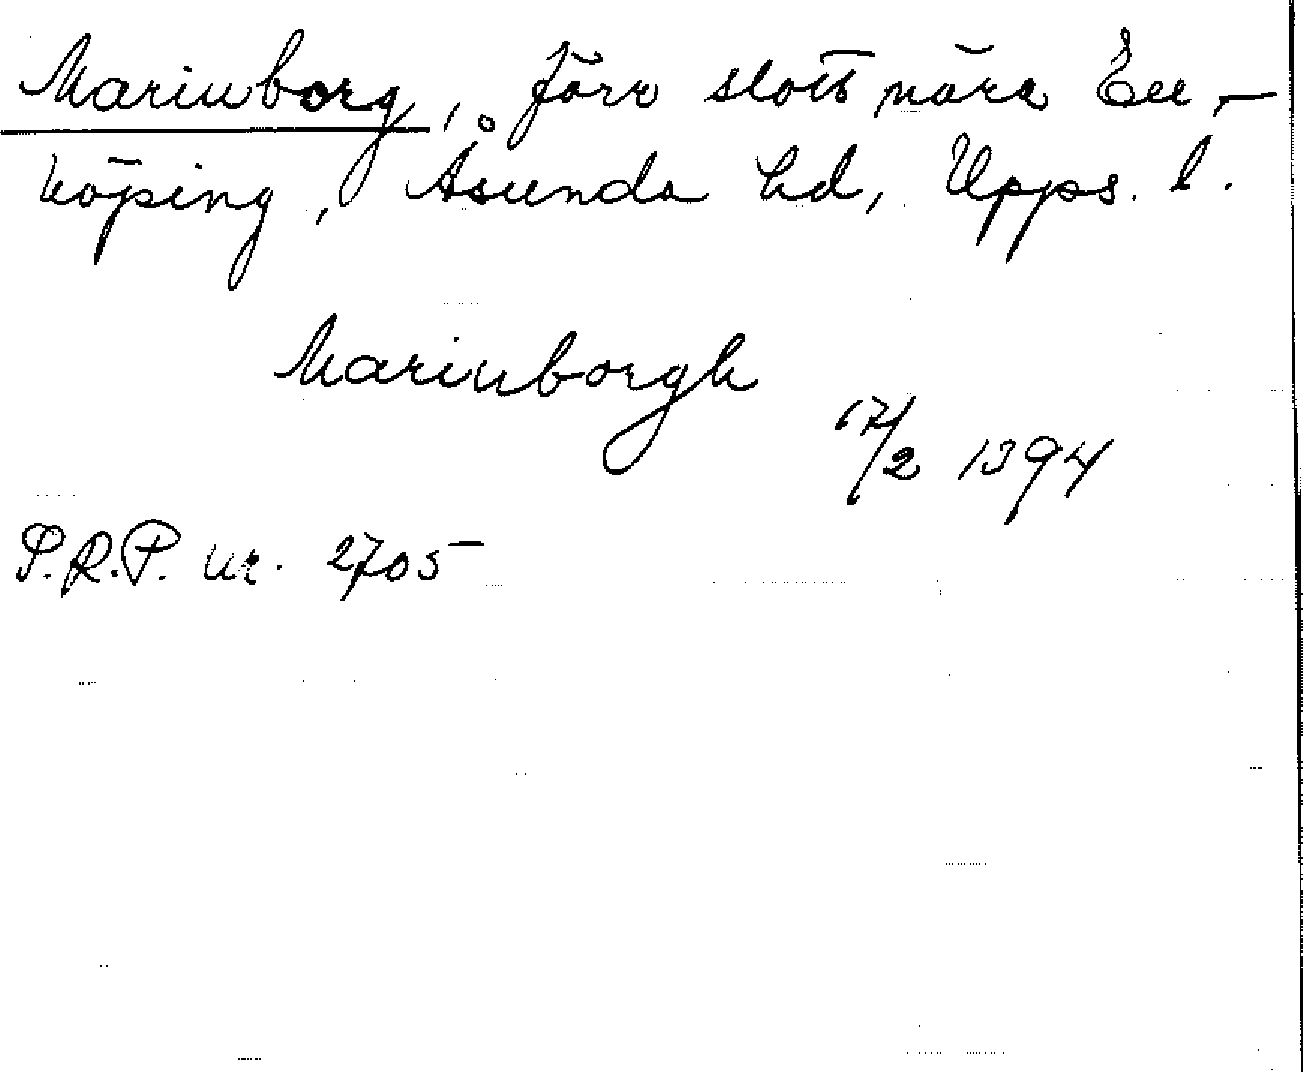 Marinborg, förv slott nära En-
köping, Åsunda hd, Upps. l.
Marinborgh
17/2 1394
S.R.P. nr. 2705